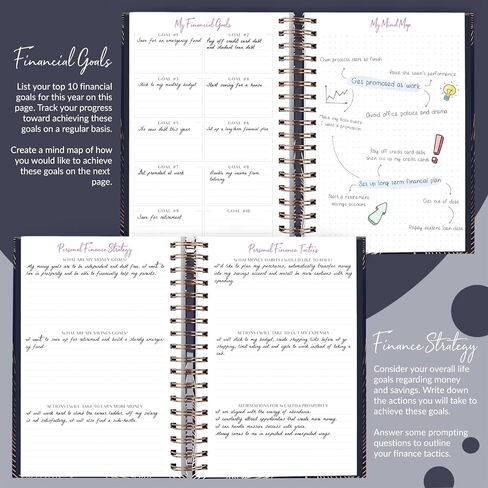 Financial Goals
List your top 10 financial
goals for this year on this
page. Track your progress
toward achieving these
goals on a regular basis.
Create a mind map of how
you would like to achieve
these goals on the next
page.
My Financial Goals
GOAL #1
Save for an emergency fund
GOAL #2
Pay off credit card debt
and student loan debt
GOAL #3
Stick to my monthly budget
GOAL #4
Start saving for a house
GOAL #5
No new debt this year
GOAL #6
Set up a long-term financial plan
GOAL #7
Get promoted at work
GOAL #8
Double my income from
tutoring
GOAL #9
Save for retirement
GOAL #10
My Mind Map
Own projects start to finish
Raise the team's performance
Get promoted at work
Make my boss aware
I want a promotion
Avoid office politics and drama
Pay off credit card debt
then cut up my credit cards
Set up long term financial plan
Start a retirement
savings account
Get out of debt
Repay student loan debt
Personal Finance Strategy
WHAT ARE MY MONEY GOALS?
My money goals are to be independent and debt free. I want to
live in prosperity and be able to financially help my parents.
WHAT ARE MY SAVINGS GOALS?
I want to save up for retirement and build a sturdy emergency
fund.
ACTIONS I WILL TAKE TO EARN MORE MONEY
I will work hard to climb the career ladder. If my salary
is not satisfactory, I will also find a side-hustle.
Personal Finance Tactics
WHAT MONEY HABITS I WOULD LIKE TO BUILD?
I'd like to plan my purchases, automatically transfer money
into my savings account and overall be more cautious with my
spending.
ACTIONS I WILL TAKE TO CUT MY EXPENSES
I will stick to my budget, create shopping lists before I go
shopping, limit eating out and cycle to work instead of taking a
cab.
AFFIRMATIONS FOR WEALTH & PROSPERITY
I am aligned with the energy of abundance.
I constantly attract opportunities that create more money.
I can handle massive success with grace.
Money comes to me in expected and unexpected ways.
Finance Strategy
Consider your overall life
goals regarding money
and savings. Write down
the actions you will take to
achieve these goals.
Answer some prompting
questions to outline
your finance tactics.